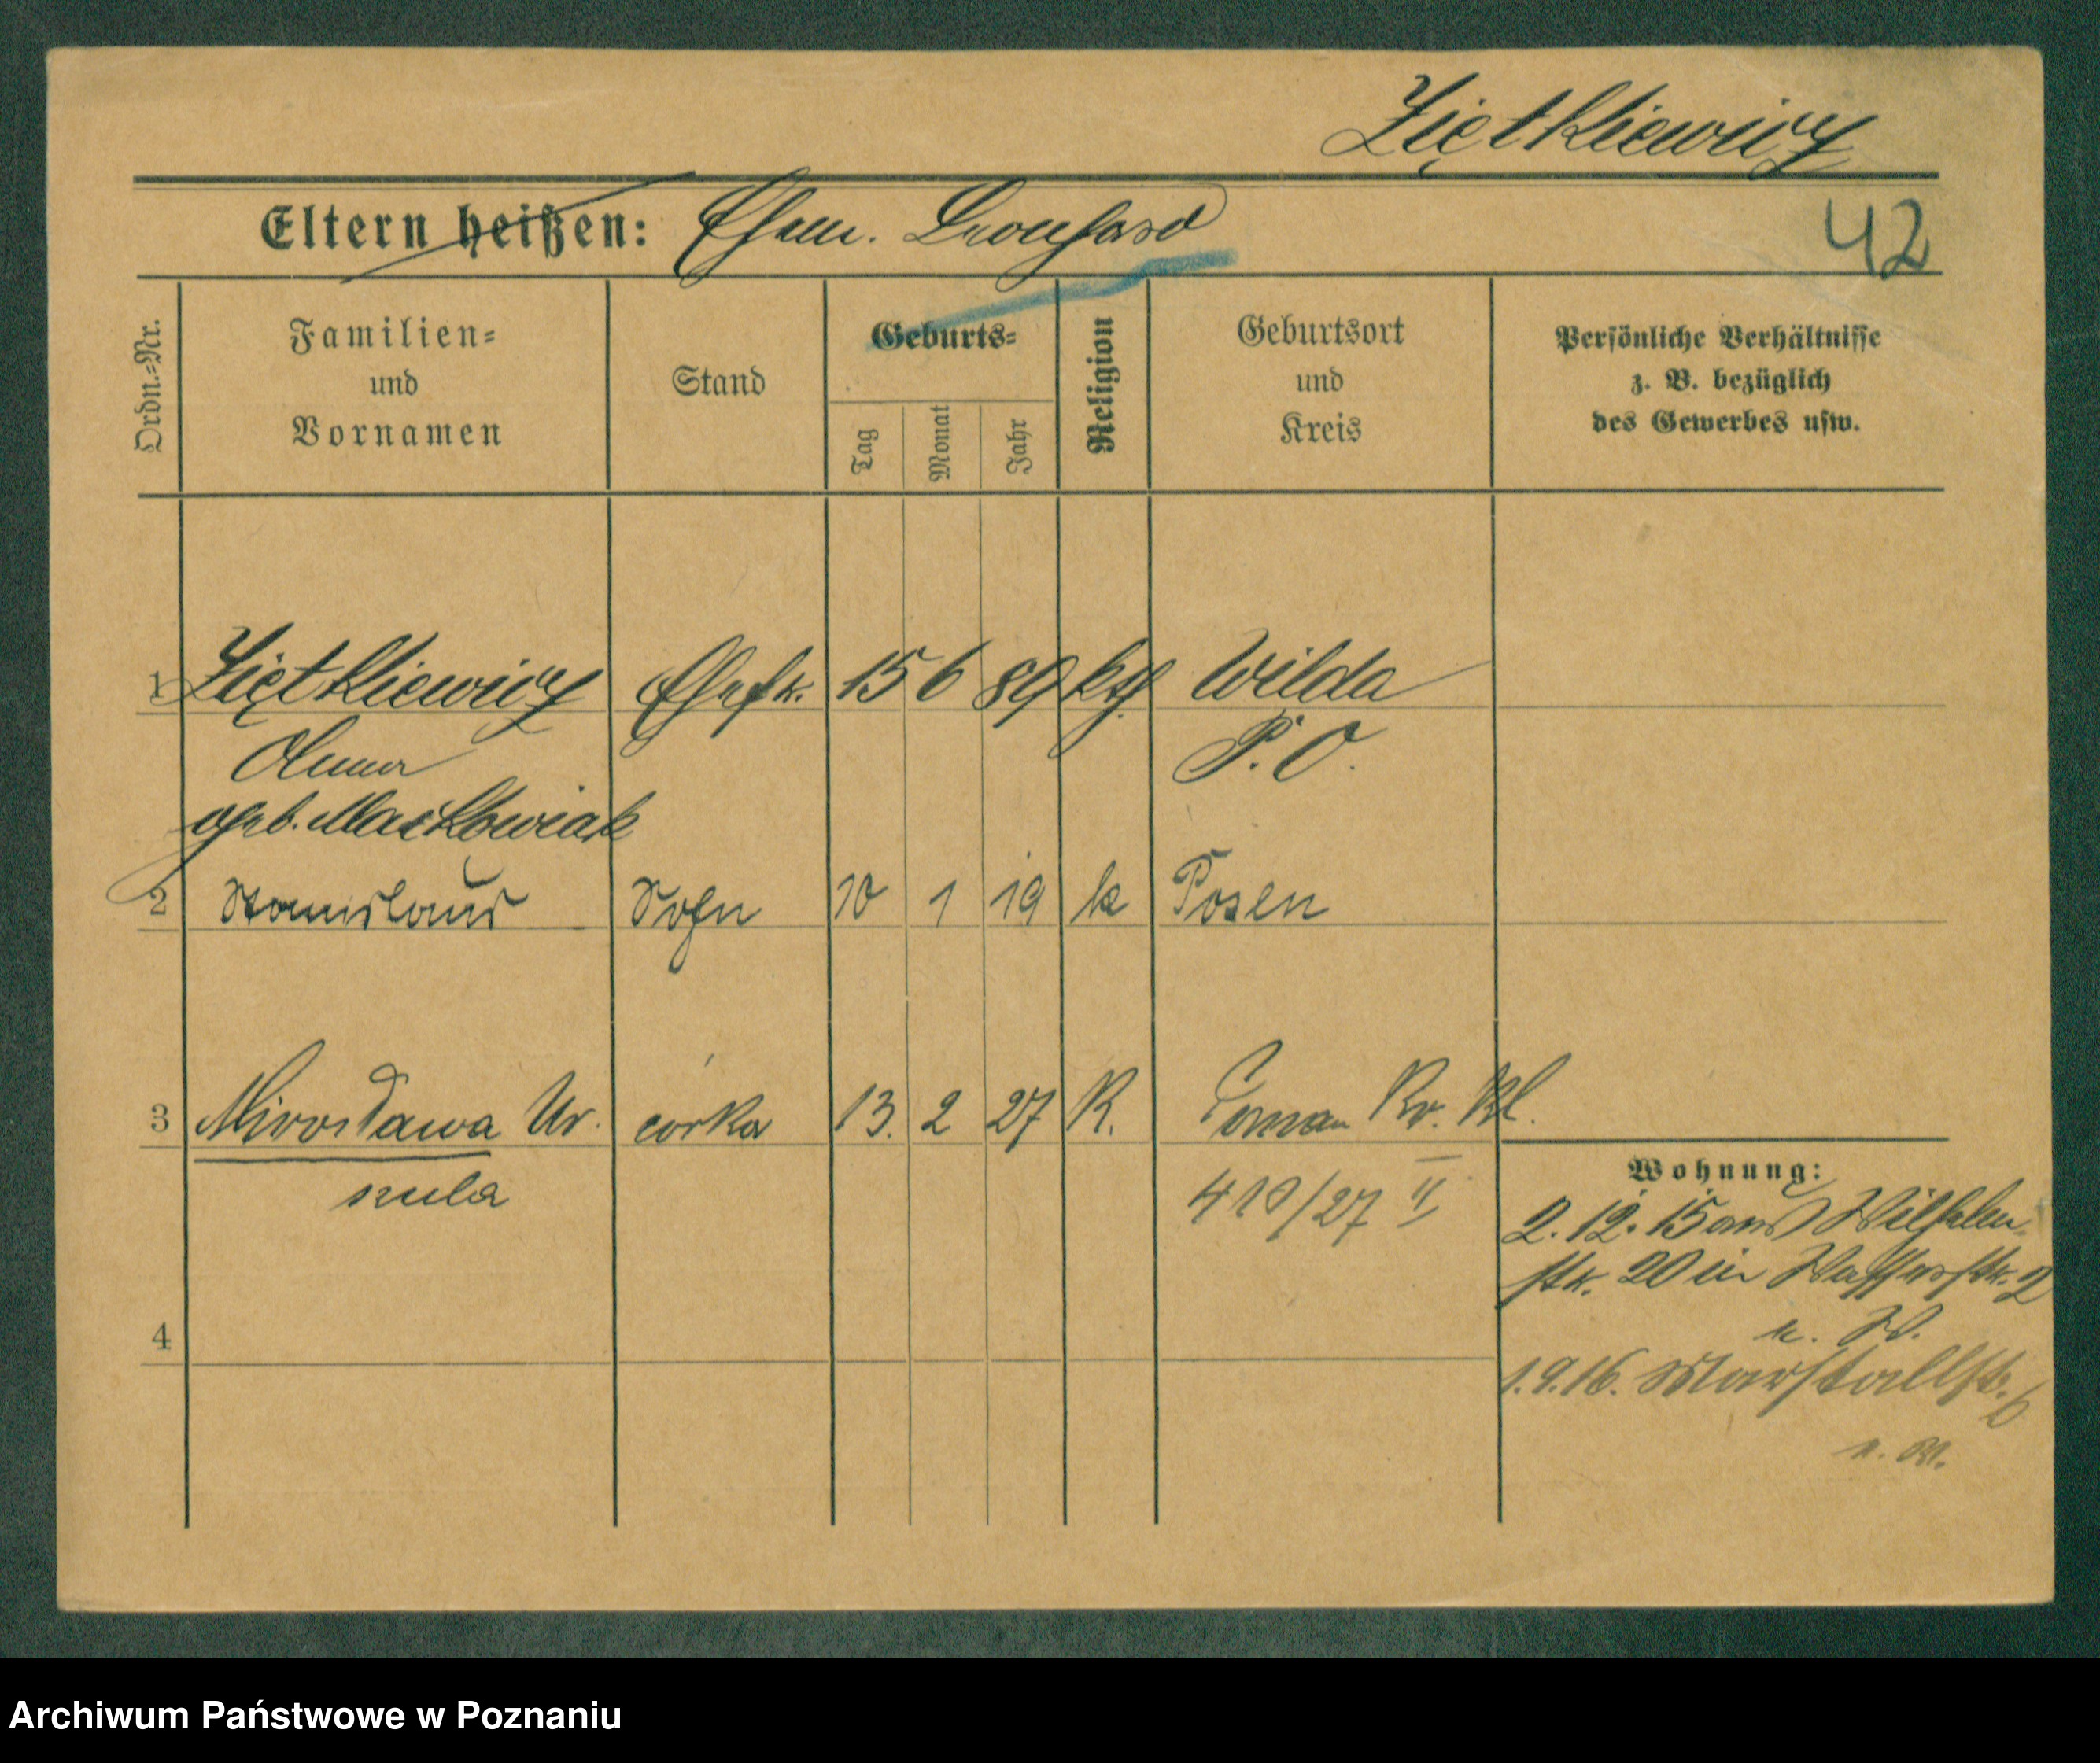 Ziętkiewicz
Eltern heißen: Ehem. Leonhard
42
Ordn.-Nr.
Familien-
und
Vornamen
Stand
Geburts-
Tag
Monat
Jahr
Religion
Geburtsort
und
Kreis
Persönliche Verhältnisse
z. B. bezüglich
des Gewerbes usw.
1 Ziętkiewicz Ehefr. 15 6 89 kth Wilda
Anna P. O.
geb. Maćkowiak
2 Stanislaus Sohn 10 1 19 k Posen
3 Mirosława Ur. córka 13. 2 27 R.
szula
Wohnung:
2. 12. 15 aus Wilhelm-
str. 20 in Wasserstr. 2
n. W.
1.9.16. Marstallstr. 6
4
Archiwum Państwowe w Poznaniu